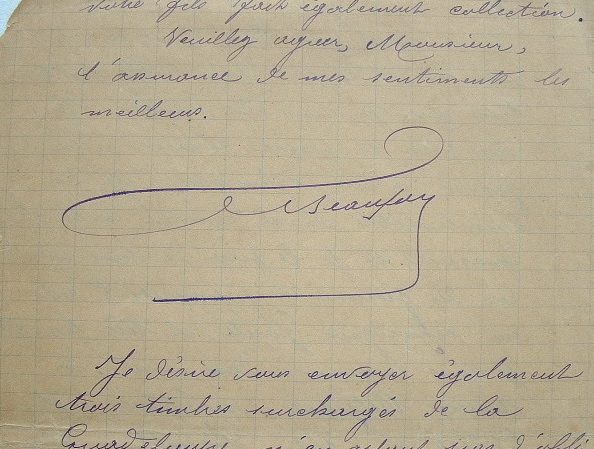 votre fils fait également collection.
Veuillez agréer, Monsieur,
l'assurance de mes sentiments les
meilleurs.
Je désire vous envoyer également
trois timbres surchargés de la
Guadeloupe